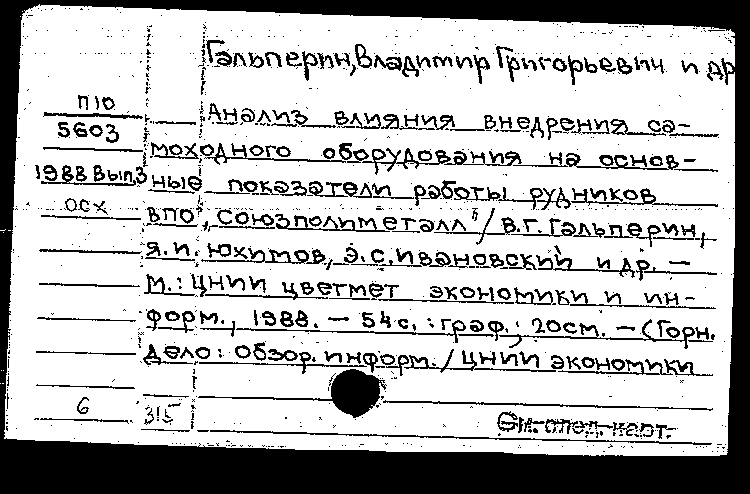 Гальперин, Владимир Григорьевич и др
П10
5603
1988 Вып.3
осх
Анализ влияния внедрения са-
моходного оборудования на основ-
ные показатели работы рудников
ВПО „Союзполиметалл"/ В.Г. Гальперин,
Я.И. Юхимов, Э.С. Ивановский и др. —
М.: ЦНИИ цветмет экономики и ин-
форм., 1988. — 54 с. : граф.; 20 см. — (Горн.
дело: Обзор. информ. / ЦНИИ экономики
6
315
См. след. карт.